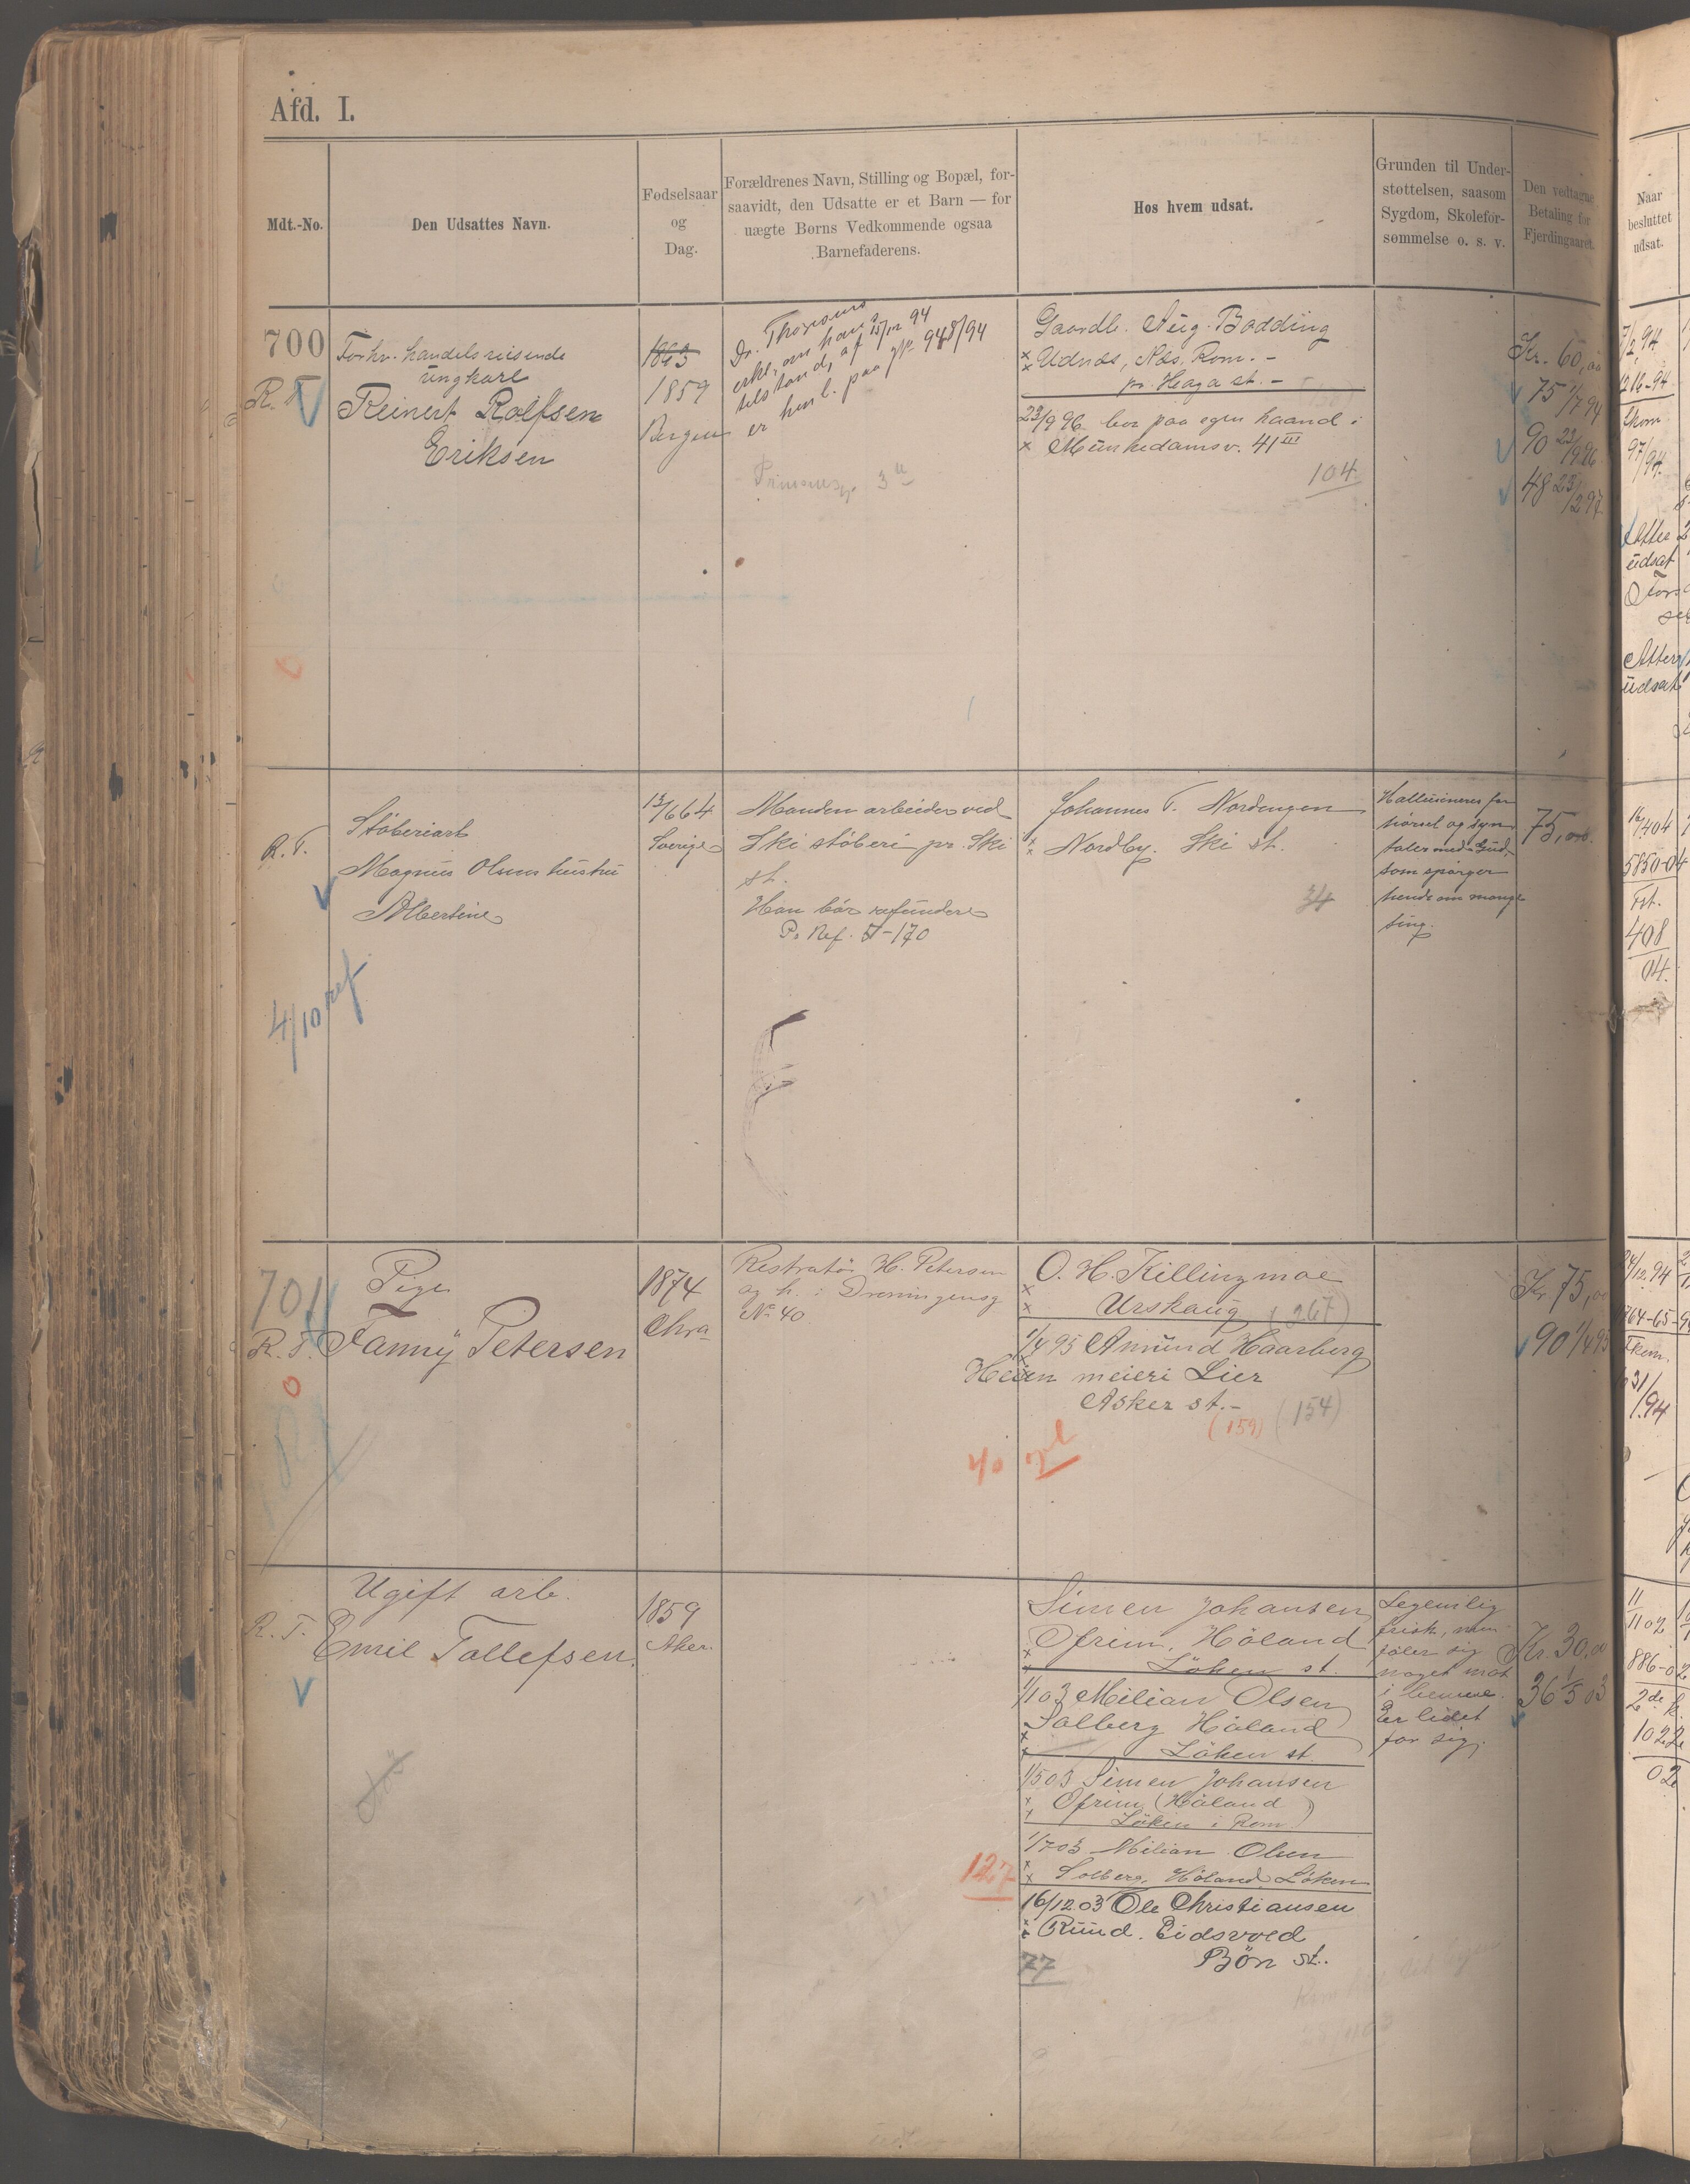 Afd. I.
Mdt.-No.
Den Udsattes Navn.
Fødselsaar
og
Dag.
Forældrenes Navn, Stilling og Bopæl, for-
saavidt, den Udsatte er et Barn — for
uægte Børns Vedkommende ogsaa
Barnefaderens.
Hos hvem udsat.
Grunden til Under-
støttelsen, saasom
Sygdom, Skolefor-
sømmelse o. s. v.
Den vedtagne
Betaling for
Fjerdingaaret.
Naar
besluttet
udsat.
700
R. T.
Forhv. handelsreisende
ungkarl
Reinert Rolfsen
Eriksen
1863
1859
Bergen
Dr. Thoresens
erkl. om hans
tilstand, af 15/12 94
er henl. paa
Gaardb. Aug. Bødding
Udnæs, Næs, Rom. -
pr. Haga st. -
23/9 96 bor paa egen haand i
Munkedamsv. 41 III
104
Kr. 60,00
75 1/7 94
90 23/9 96
48 23/2 97
R. T.
Støberiarb
Magnus Olsens hustru
Albertine
4/10 ref
13/6 64
Sverige
Manden arbeider ved
Ski støberi pr. Ski
st.
Han bør refundere
P. Ref. 7-170
Johannes T. Nordengen
Nordby. Ski st.
34
Hallusinerer for
hørsel og syn,
taler med Gud,
som spørger
hende om mange
ting.
75,00
16/4 04
5850-04
Fst.
408
04.
701
R. T.
Pige
Fanny Petersen
1874
Chra
Restratør H. Petersen
og h. i Dronningensg
No 40
O. H. Killingmoe
Urskaug (267)
1/4 95 Amund Haarberg
Heien meieri Lier
Asker st. -
(159) (154)
Kr. 75,00
90 1/4 95
24/12 94
R. T.
Ugift arb.
Emil Tollefsen.
1859
Aker.
Simen Johansen
Ofrim, Høland
Løken st.
1/1 03 Milian Olsen
Solberg Høland
Løken st.
1/5 03 Simen Johansen
Ofrim (Høland
Løken i Rom.)
1/7 03 Milian Olsen
Solberg, Høland, Løken
127
16/12 03 Ole Christiansen
Ruud. Eidsvold
Bøn st.
77
Legemlig
frisk, men
føler sig
noget mat
i benene.
Er lidet
for sig.
Kr. 30,00
36 1/5 03
11
11 02
886-02
2de k.
1022
02